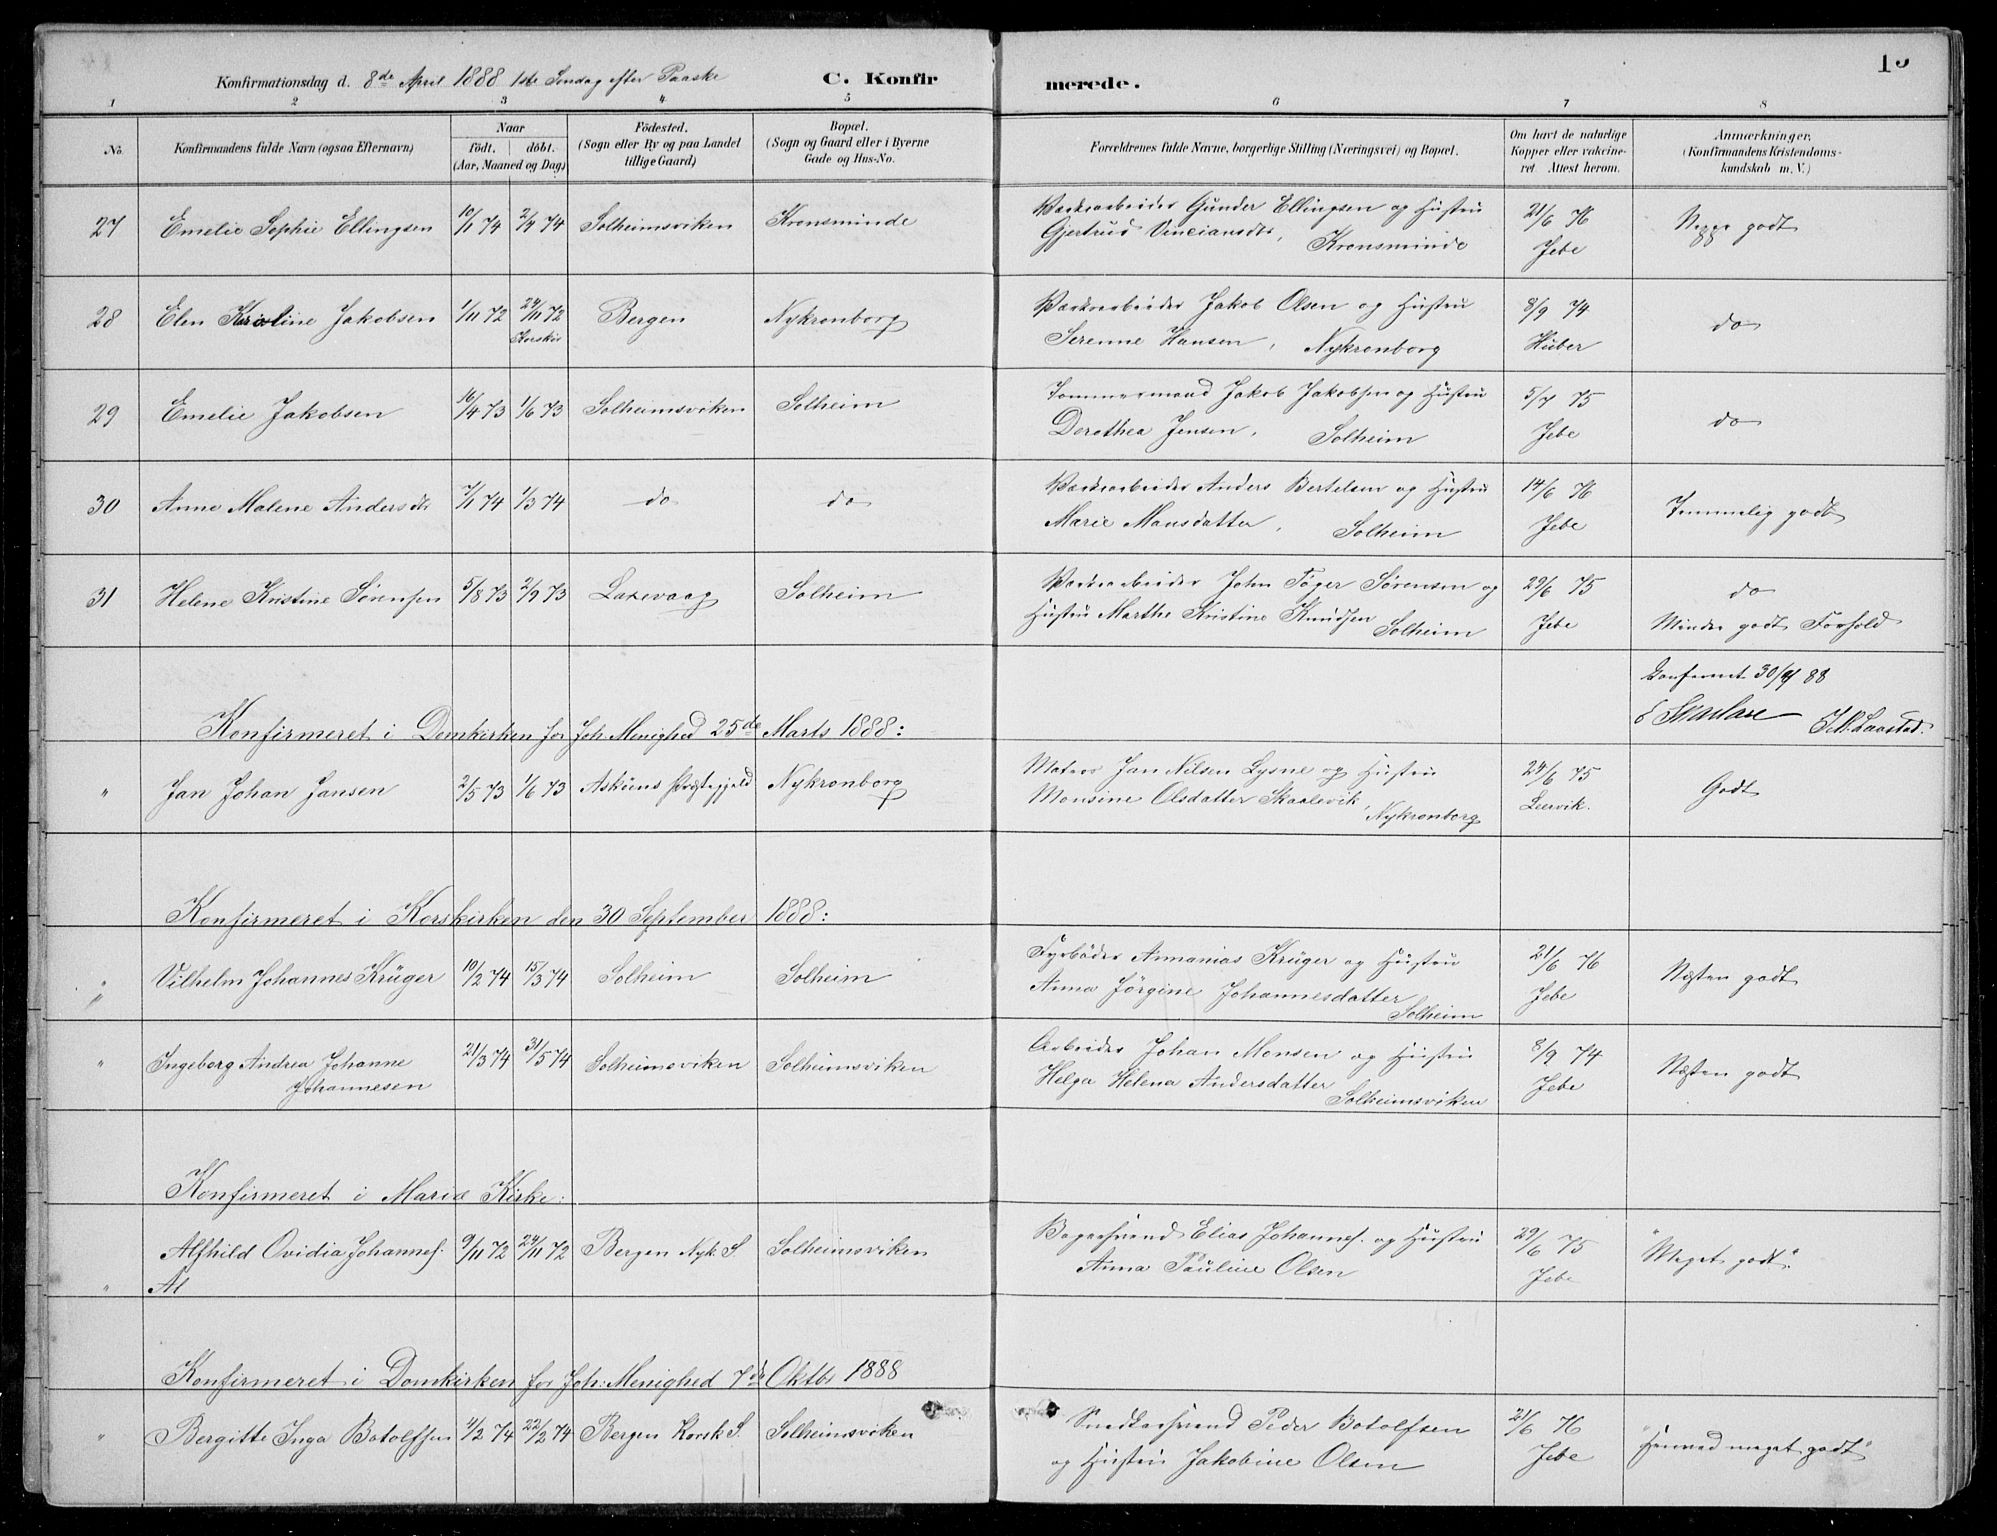 15
Konfirmationsdag d. 8de April 1888 1ste Søndag efter Paaske
C. Konfirmerede.
1 2 3 4 5 6 7 8
No.
Konfirmandens fulde Navn (ogsaa Efternavn)
Naar
födt. döbt.
(Aar, Maaned og Dag)
Födested.
(Sogn eller By og paa Landet
tillige Gaard)
Bopæl.
(Sogn og Gaard eller i Byerne
Gade og Hus-No.
Forældrenes fulde Navne, borgerlige Stilling (Næringsvei) og Bopæl.
Om havt de naturlige
Kopper eller vakcine-
ret. Attest herom.
Anmærkninger.
(Konfirmandens Kristendoms-
kundskab m. V.)
27 Emelie Sophie Ellingsen 10/1 74 2/4 74 Solheimsviken Kronsminde Værksarbeider Gunder Ellingsen og Hustru 21/6 76 Neppe godt
Gjertrud Vinciansdtr, Kronsminde Jebe
28 Elen Karoline Jakobsen 1/11 72 24/11 72 Bergen Nykronborg Værksarbeider Jakob Olsen og Hustru 8/9 74 do
Korskir Serenne Hansen, Nykronborg Huber
29 Emelie Jakobsen 16/4 73 1/6 73 Solheimsviken Solheim Tømmermand Jakob Jakobsen og Hustru 5/7 75 do
Dorothea Jensen, Solheim Jebe
30 Anne Malene Andersdtr 7/1 74 1/3 74 do do Værksarbeider Anders Bertelsen og Hustru 14/6 76 Temmelig godt
Marie Mansdatter, Solheim Jebe
31 Helene Kristine Sørensen 5/8 73 2/9 73 Laxevaag Solheim Værksarbeider John Töger Sørensen og 29/6 75 do
Hustru Marthe Kristine Knudsen Solheim Jebe Mindre godt Forhold
Konfereret 30/4 88
Konfirmeret i Domkirken for Joh: Menighed 25de Marts 1888:
" Jan Johan Jansen 2/5 73 1/6 73 Askøens Præstegjeld Nykronborg Matros Jan Nilsen Lysne og Hustru 24/6 75 Godt
Monsine Olsdatter Skaalevik, Nykronborg Leervik.
Konfirmeret i Korskirken den 30 September 1888:
" Vilhelm Johannes Krüger 10/2 74 15/3 74 Solheim Solheim Fyrböder Annanias Krüger og Hustru 21/6 76 Næsten godt
Anna Jörgine Johannesdatter Solheim Jebe
" Ingeborg Andrea Johanne 21/3 74 31/5 74 Solheimsviken Solheimsviken Arbeider Johan Monsen og Hustru 8/9 74 Næsten godt
Johannesen Helga Helena Andersdatter Solheimsviken Jebe
Konfirmeret i Mariæ Kirke:
Alfhild Ovidia Johannes. 9/11 72 24/11 72 Bergen Nyk. S. Solheimsviken Bagersvend Elias Johannes. og Hustru 29/6 75 "Meget godt"
" Al Anna Pauline Olsen Jebe
Konfirmeret i Domkirken for Joh: Menighed 7de Oktbr 1888
" Bergitte Inga Botolfsen 4/2 74 22/2 74 Bergen Korsk S. Solheimsviken Snedkersvend Peder Botolfsen 21/6 76 "Henved meget godt"
og Hustru Jakobine Olsen Jebe